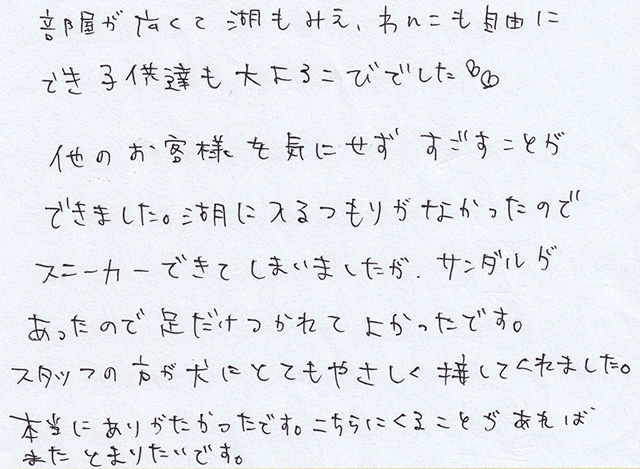 部屋が広くて湖もみえ、わんこも自由に
でき子供達も大よろこびでした♡♡
他のお客様を気にせずすごすことが
できました。湖に入るつもりがなかったので
スニーカーできてしまいましたが、サンダルが
あったので足だけつかれてよかったです。
スタッフの方が犬にとてもやさしく接してくれました。
本当にありがたかったです。こちらにくることがあれば
またとまりたいです。